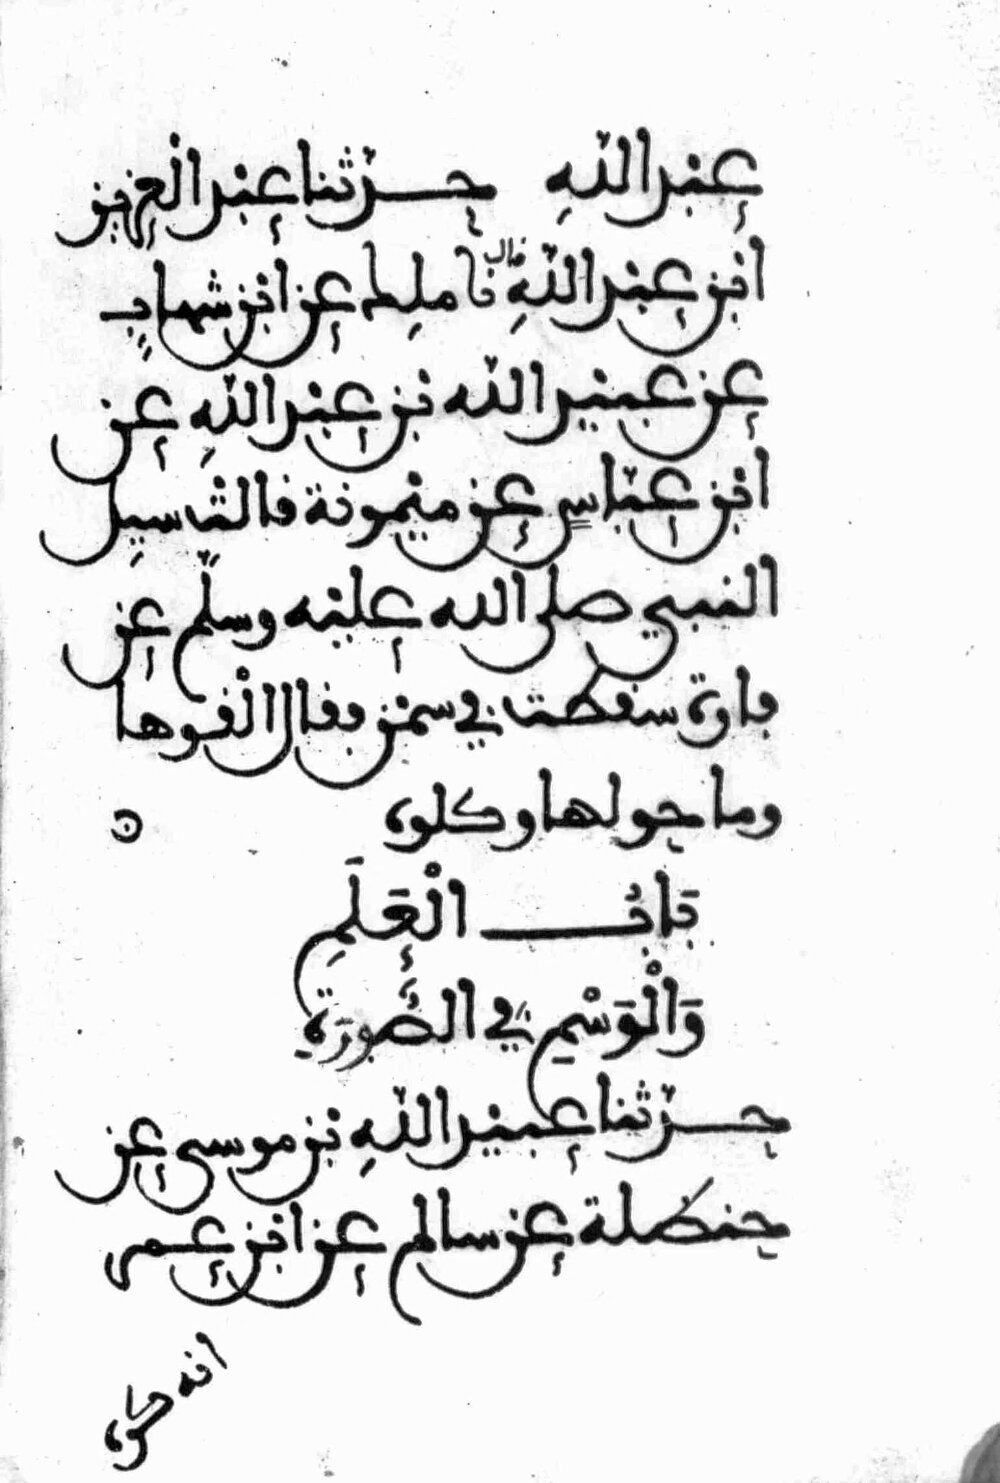 عبد اللهِ حدثنا عبد الْعزيز
ابن عبد اللهِ قال نا ملك عن ابن شهاب
عن عبيد الله بن عبد اللهِ عن
ابن عباسٍ عن ميمونة قالت سيل
النبي صلى الله عليه وسلم عن
فارة سقطت في سمن فقال الْقوها
وما حولها وكلوه
بَابُ الْعَلَمِ
وَالْوَسْمِ في الصُّورَةِ
حدثنا عبيد اللهِ بن موسى عن
حنظلة عن سالم عن ابن عمر
انه كره